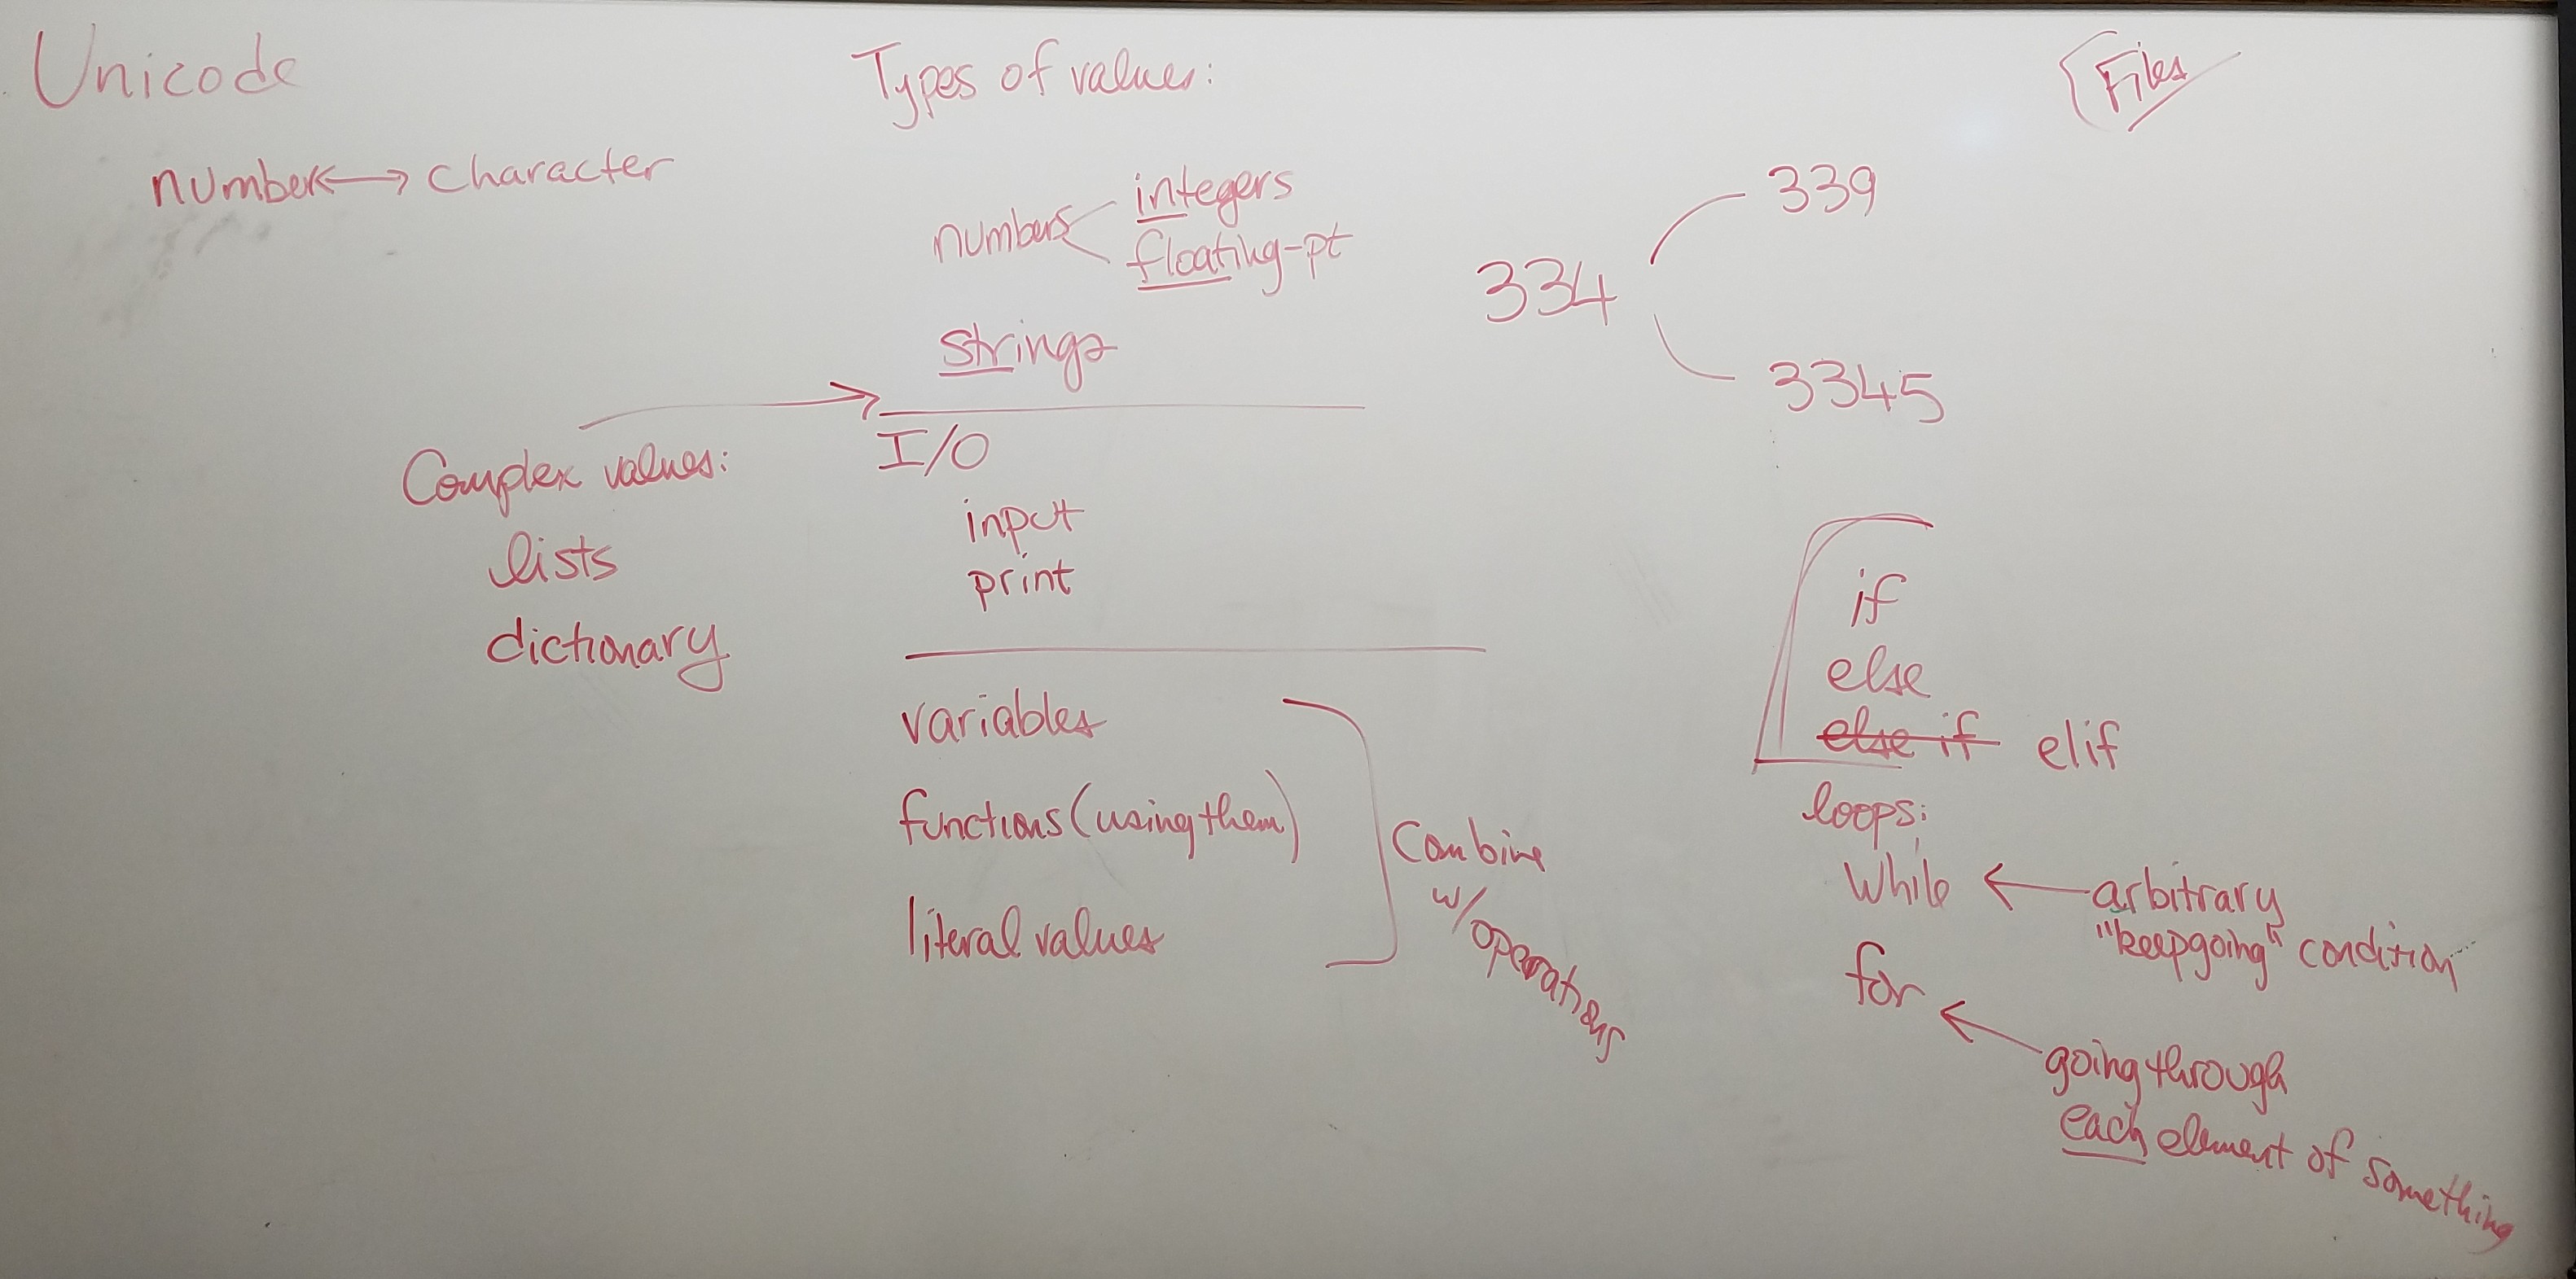 Unicode
number ←→ character
Types of values:
numbers
integers
floating-pt
strings
Complex values:
lists
dictionary
I/O
input
print
variables
functions (using them)
literal values
Combine
w/operations
334
339
3345
Files
if
else
else if elif
loops:
while ← arbitrary
"keepgoing" condition
for ← going through
each element of something